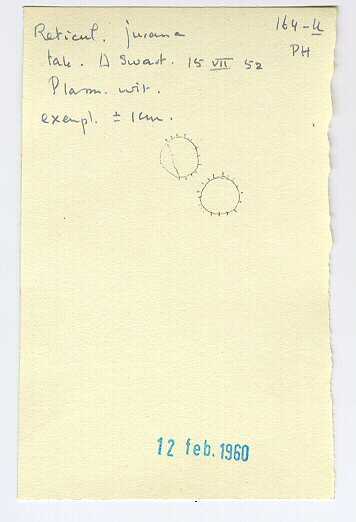 Reticul. jurana
164-U
PH
tak. D Swart. 15 VII 52
Plasm. wit.
exempl. ± 1cm.
12 feb. 1960